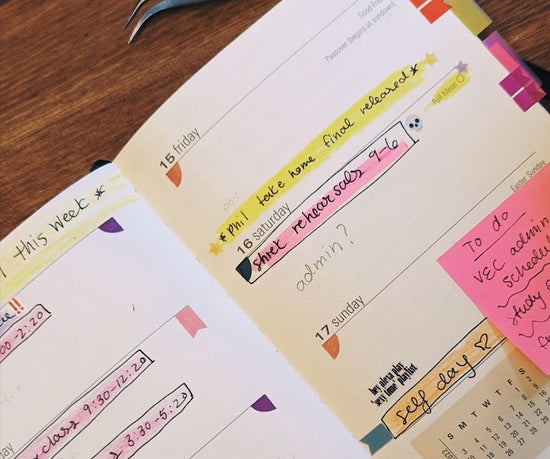 this week *
00-2:20
class 9:30-12:20
3:30-5:20
Good Fri
Passover (begins at sundown)
15 friday
* Phil take home final released *
Full Moon
16 saturday
shrek rehearsals 9-6
admin?
Easter Sunday
17 sunday
hey alexa play
self time playlist
self day ♡
TO do
VEC admin
schedul
study
S M T W T F S